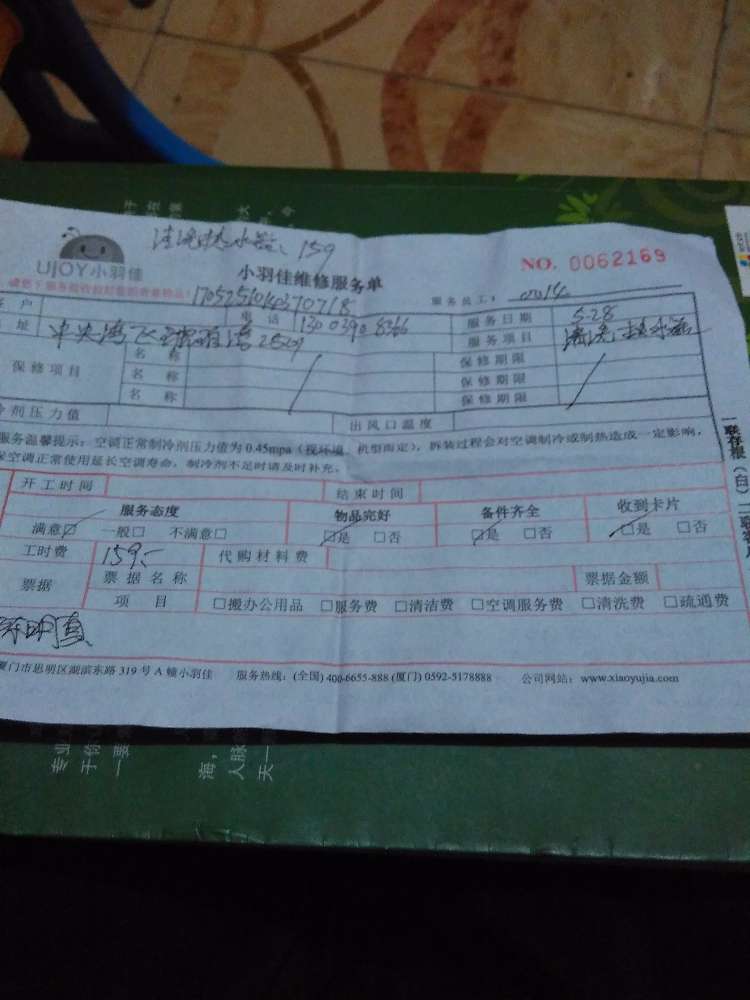 清洗热水器、159
UJOY小羽佳
小羽佳维修服务单
NO. 0062169
170525101403710718
服务员工: 0014
客户
电话 13003908366
服务日期 5-28
地址 中央湾
服务项目 清洗热水器
保修项目
名称 保修期限
名称 保修期限
名称 保修期限
冷剂压力值
出风口温度
服务温馨提示:空调正常制冷剂压力值为0.45mpa(视环境、机型而定),拆装过程会对空调制冷或制热造成一定影响,
保空调正常使用延长空调寿命,制冷剂不足时请及时补充。
开工时间
结束时间
服务态度 物品完好 备件齐全 收到卡片
满意☑ 一般□ 不满意□ ☑是 □否 ☑是 □否 ☑是 □否
工时费 159.-
代购材料费
票据
票据名称
票据金额
项目 □搬办公用品 □服务费 □清洁费 □空调服务费 □清洗费 □疏通费
厦门市思明区湖滨东路319号A幢小羽佳 服务热线:(全国)400-6655-888 (厦门) 0592-5178888 公司网站:www.xiaoyujia.com
一联存根(白)二联客户
专业
于你
一要
海,
人脉
天一